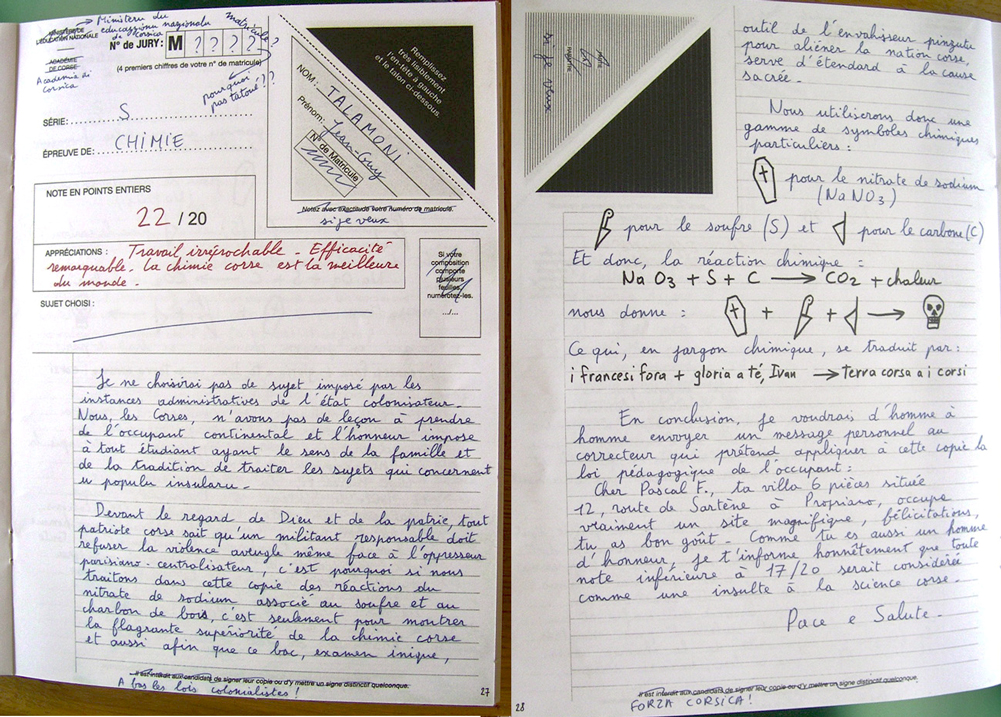 MINISTÈRE DE
L'ÉDUCATION NATIONALE
→ Ministeru du
educazionu naziunalu
di Corsica
ACADÉMIE
DE CORSE
Academia di
Corsica
N° de JURY: M ? ? ? ?
matricule?
(4 premiers chiffres de votre n° de matricule)
pourquoi
pas tatoué !?!
SÉRIE: S
ÉPREUVE DE: CHIMIE
Remplissez
très lisiblement
l'en-tête à gauche
et le talon ci-dessous
NOM: TALAMONI
Prénom: Jean-Guy
N° de Matricule
Notez avec exactitude votre numéro de matricule.
si je veux
NOTE EN POINTS ENTIERS
22 / 20
APPRÉCIATIONS : Travail irréprochable - Efficacité
remarquable - La chimie corse est la meilleure
du monde -
Si votre
composition
comporte
plusieurs
feuilles,
numérotez-les.
.../...
SUJET CHOISI :
Je ne choisirai pas de sujet imposé par les
instances administratives de l'état colonisateur.
Nous, les Corses, n'avons pas de leçon à prendre
de l'occupant continental et l'honneur impose
à tout étudiant ayant le sens de la famille et
de la tradition de traiter les sujets qui concernent
u populu insularu -
Devant le regard de Dieu et de la patrie, tout
patriote corse sait qu'un militant responsable doit
refuser la violence aveugle même face à l'oppresseur
parisiano-centralisateur : c'est pourquoi si nous
traitons dans cette copie des réactions du
nitrate de sodium associé au soufre et au
charbon de bois, c'est seulement pour montrer
la flagrante supériorité de la chimie corse
et aussi afin que ce bac, examen inique,
Il est interdit aux candidats de signer leur copie ou d'y mettre un signe distinctif quelconque.
A bas les lois colonialistes !
27
si je veux
outil de l'envahisseur pinzutu
pour aliéner la nation corse,
serve d'étendard à la cause
sacrée -
Nous utiliserons donc une
gamme de symboles chimiques
particuliers :
pour le nitrate de sodium
(NaNO3)
pour le soufre (S) et pour le carbone (C)
Et donc, la réaction chimique :
Na O3 + S + C → CO2 + chaleur
nous donne : + + →
Ce qui, en jargon chimique, se traduit par :
i francesi fora + gloria a té, Ivan → terra corsa a i corsi
En conclusion, je voudrais d'homme à
homme envoyer un message personnel au
correcteur qui prétend appliquer à cette copie la
loi pédagogique de l'occupant :
Cher Pascal F., ta villa 6 pièces située
12, route de Sartène à Propriano, occupe
vraiment un site magnifique, félicitations,
tu as bon goût - Comme tu es aussi un homme
d'honneur, je t'informe honnêtement que toute
note inférieure à 17/20 serait considérée
comme une insulte à la science corse -
Pace e Salute -
Il est interdit aux candidats de signer leur copie ou d'y mettre un signe distinctif quelconque.
FORZA CORSICA !
28